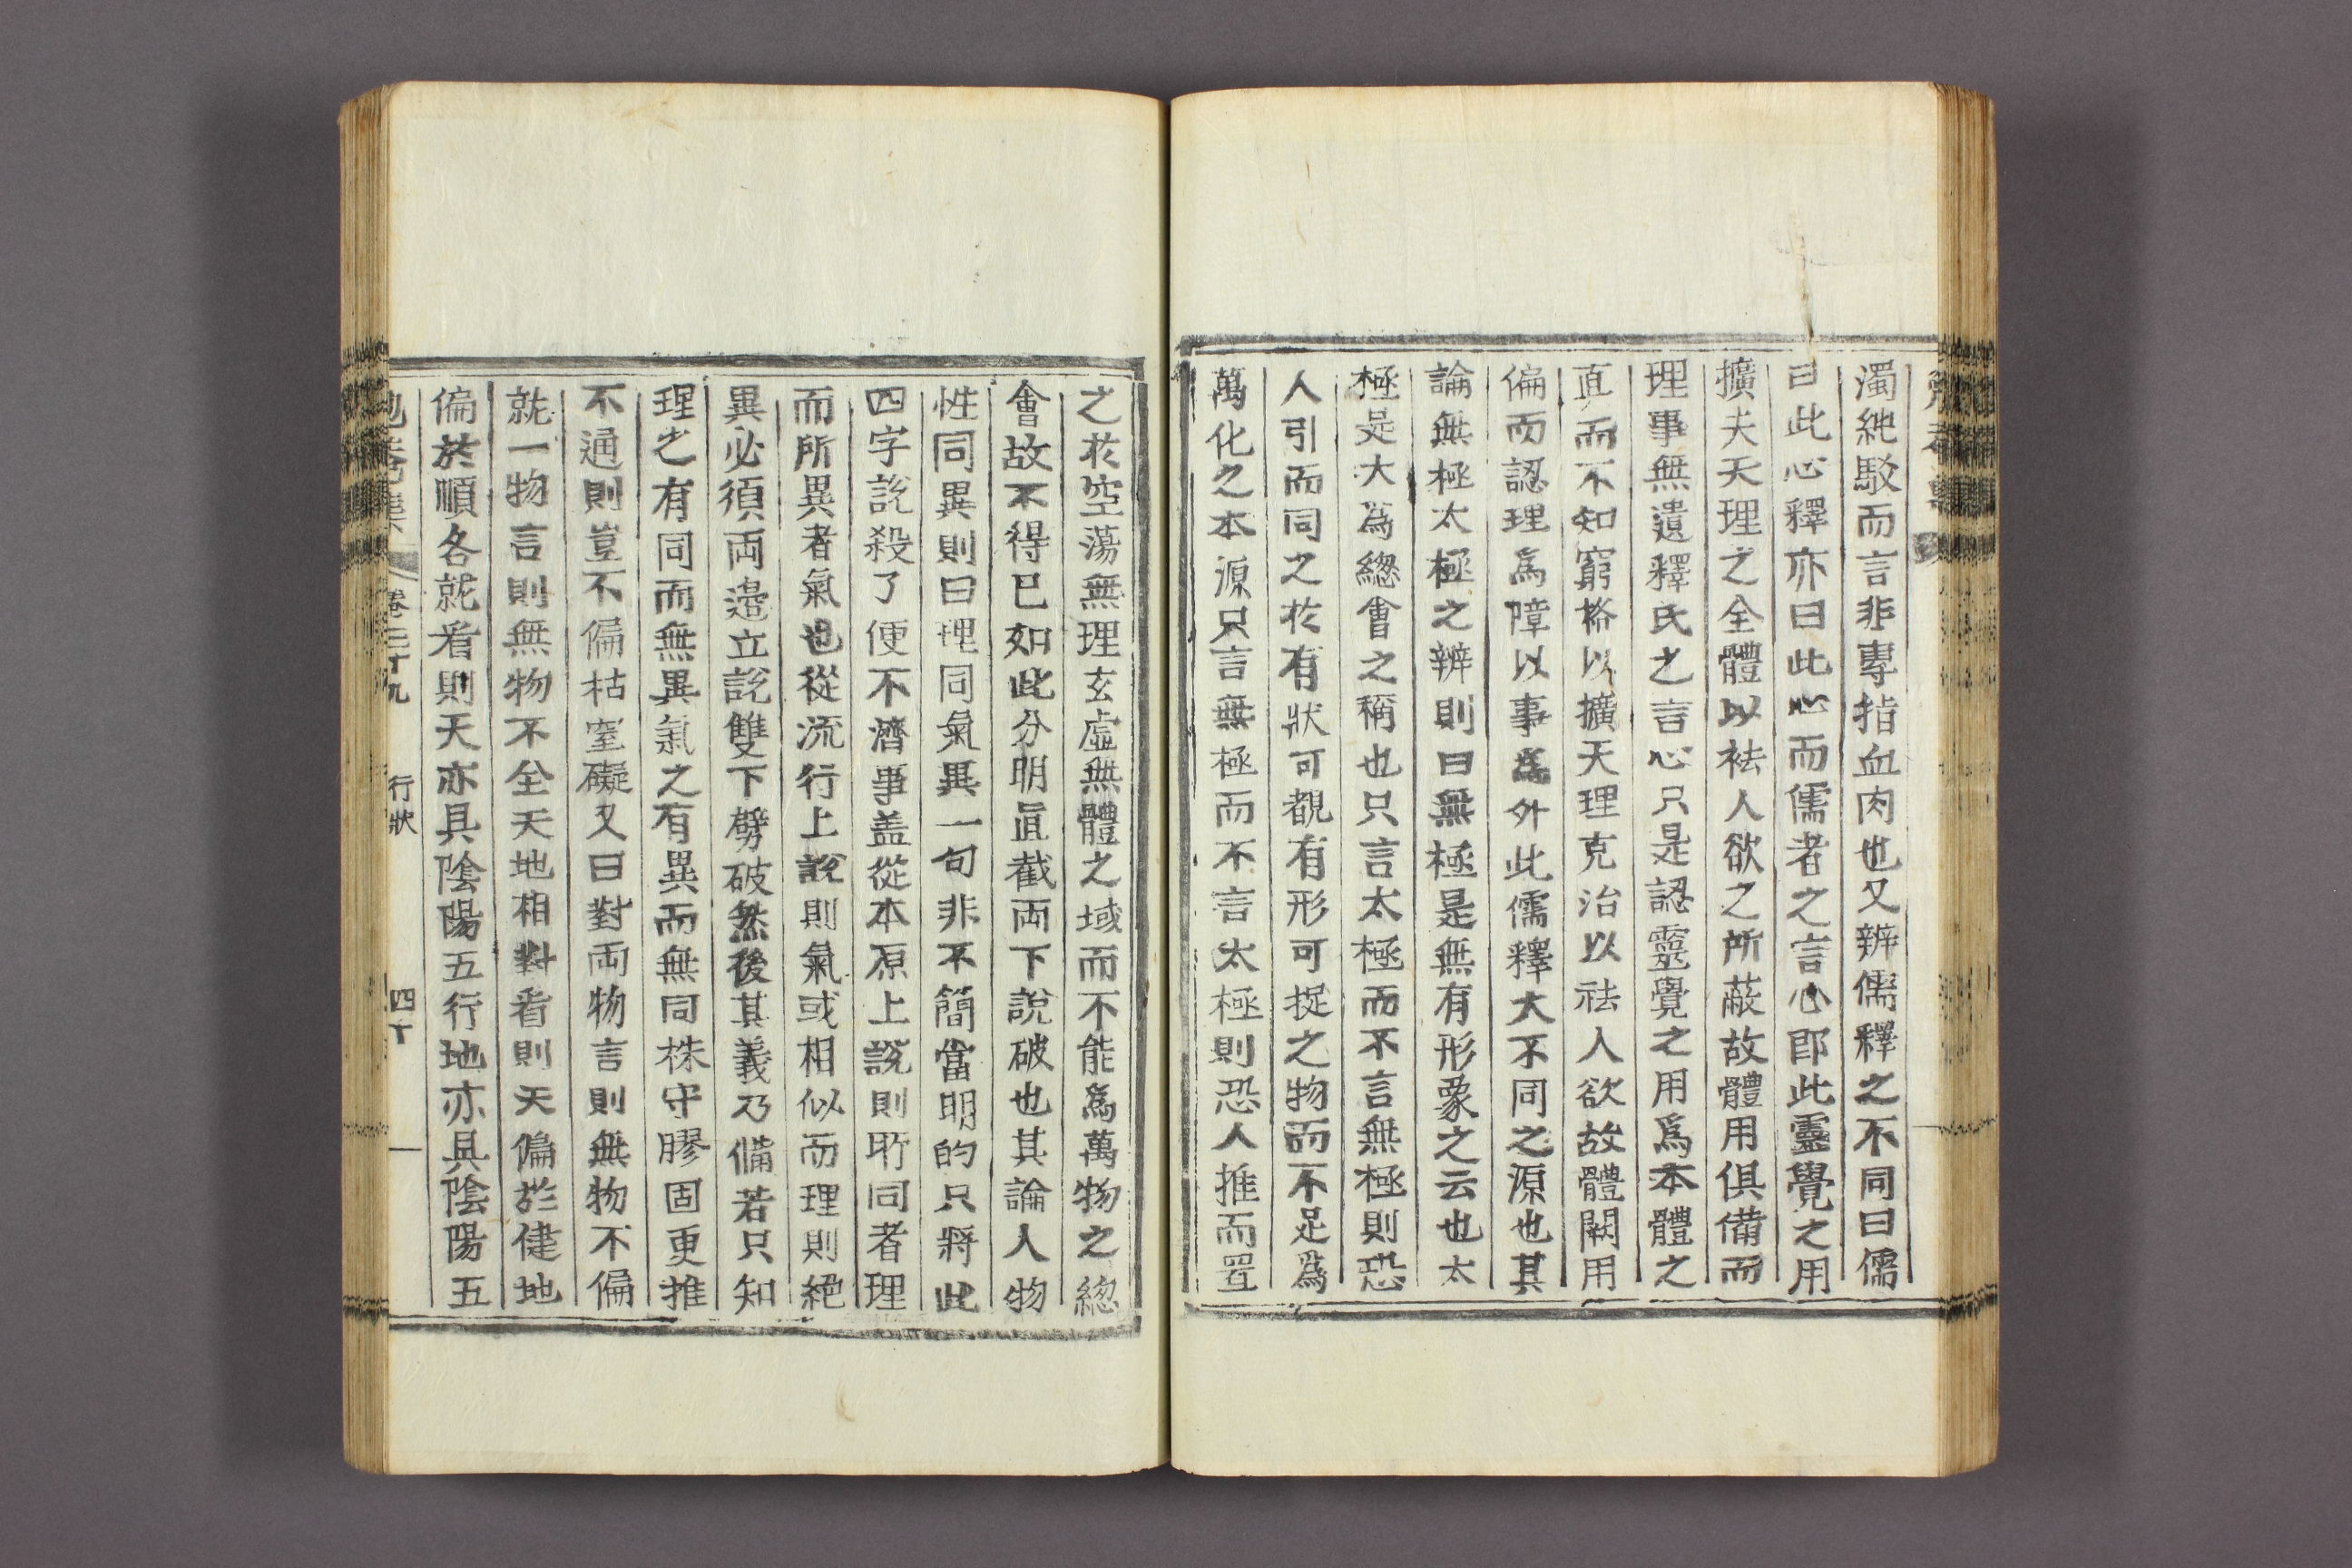 濁純駁而言非專指血肉也又辨儒釋之不同曰儒
曰此心釋亦曰此心而儒者之言心卽此靈覺之用
擴夫天理之全體以祛人欲之所蔽故體用俱備而
理事無遺釋氏之言心只是認靈覺之用爲本體之
直而不知窮格以擴天理克治以祛人欲故體闕用
偏而認理爲障以事爲外此儒釋大不同之源也其
論無極太極之辨則曰無極是無有形象之云也太
極是大爲總會之稱也只言太極而不言無極則恐
人引而同之於有狀可覩有形可捉之物而不足爲
萬化之本源只言無極而不言太極則恐人推而置
之於空蕩無理玄虛無體之域而不能爲萬物之總
會故不得已如此分明直截両下說破也其論人物
性同異則曰理同氣異一句非不簡當明的只將此
四字說殺了便不濟事盖從本原上說則所同者理
而所異者氣也從流行上說則氣或相似而理則絕
異必須両邊立說雙下劈破然後其義乃備若只知
理之有同而無異氣之有異而無同株守膠固更推
不通則豈不偏枯窒礙又曰對両物言則無物不偏
就一物言則無物不全天地相對看則天偏於健地
偏於順各就看則天亦具陰陽五行地亦具陰陽五
卷三十九 行狀 四十